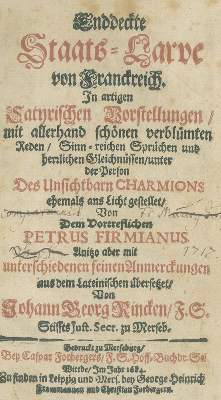 Enddeckte
Staats-Larve
von Franckreich.
In artigen
Satyrischen Vorstellungen /
mit allerhand schönen verblümten
Reden / Sinn-reichen Sprüchen und
herrlichen Gleichnüssen / unter
der Person
Des Unsichtbarn CHARMIONS
ehemals ans Licht gestellet /
Von
Dem Vortreflichen
PETRUS FIRMIANUS.
Anitzo aber mit
unterschiedenen feinen Anmerckungen
aus dem Lateinischen übersetzet /
Von
Johann Georg Rincken / F. S.
Stiffts Just. Secr. zu Merseb.
Gedruckt zu Merseburg /
Bey Caspar Forbergern / F. S. Hoff-Buchdr. Sel.
Witbe / Im Jahr 1684.
Zu finden in Leipzig und Mers. bey George Heinrich
Frommannen und Christian Forbergern.